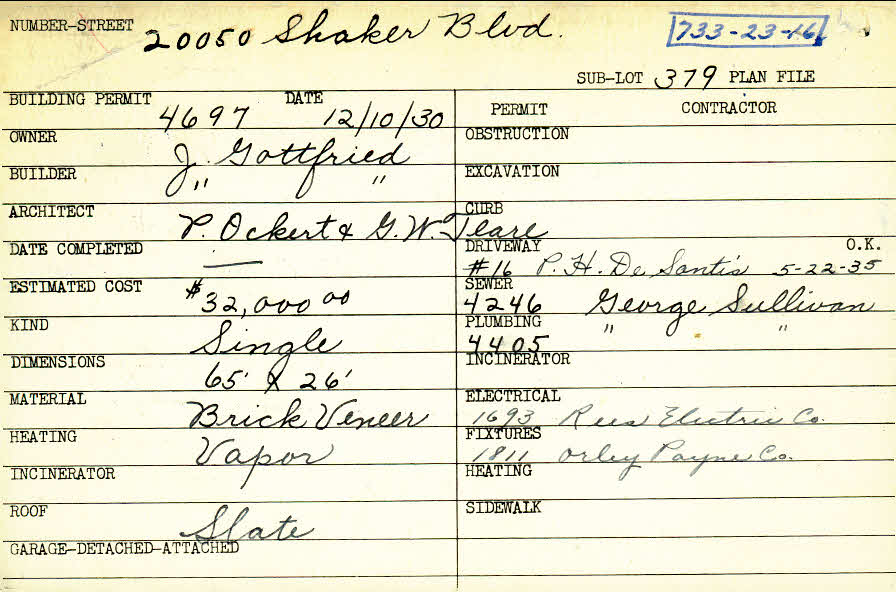 NUMBER-STREET 20050 Shaker Blvd. 733-23-16
SUB-LOT 379 PLAN FILE
BUILDING PERMIT 4697 DATE 12/10/30
OWNER J. Gottfried
BUILDER " "
ARCHITECT P. Ockert & G.W. Teare
DATE COMPLETED —
ESTIMATED COST $32,000 00
KIND Single
DIMENSIONS 65' X 26'
MATERIAL Brick Veneer
HEATING Vapor
INCINERATOR
ROOF Slate
GARAGE-DETACHED-ATTACHED
PERMIT CONTRACTOR
OBSTRUCTION
EXCAVATION
CURB
DRIVEWAY O.K.
#16 P. H. De Santis 5-22-35
SEWER
4246 George Sullivan
PLUMBING " "
4405
INCINERATOR
ELECTRICAL
1693 Rees Electric Co.
FIXTURES
1811 Orley Payne Co.
HEATING
SIDEWALK